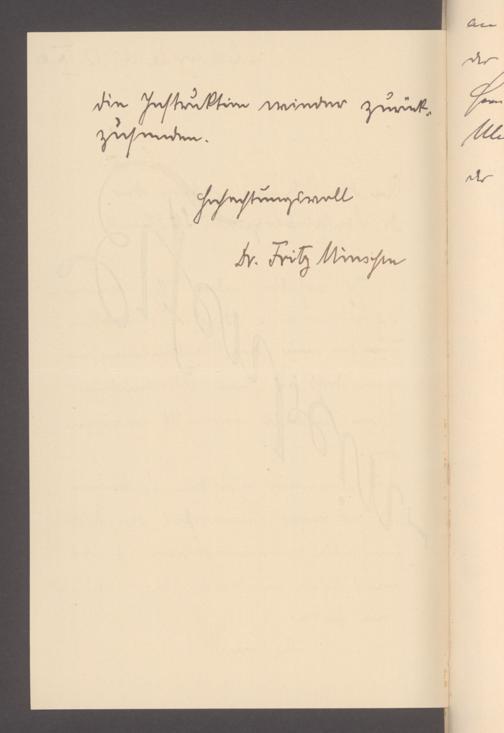 die Instruktion wieder zurück-
zusenden.
Hochachtungsvoll
Dr. Fritz
an
der
der